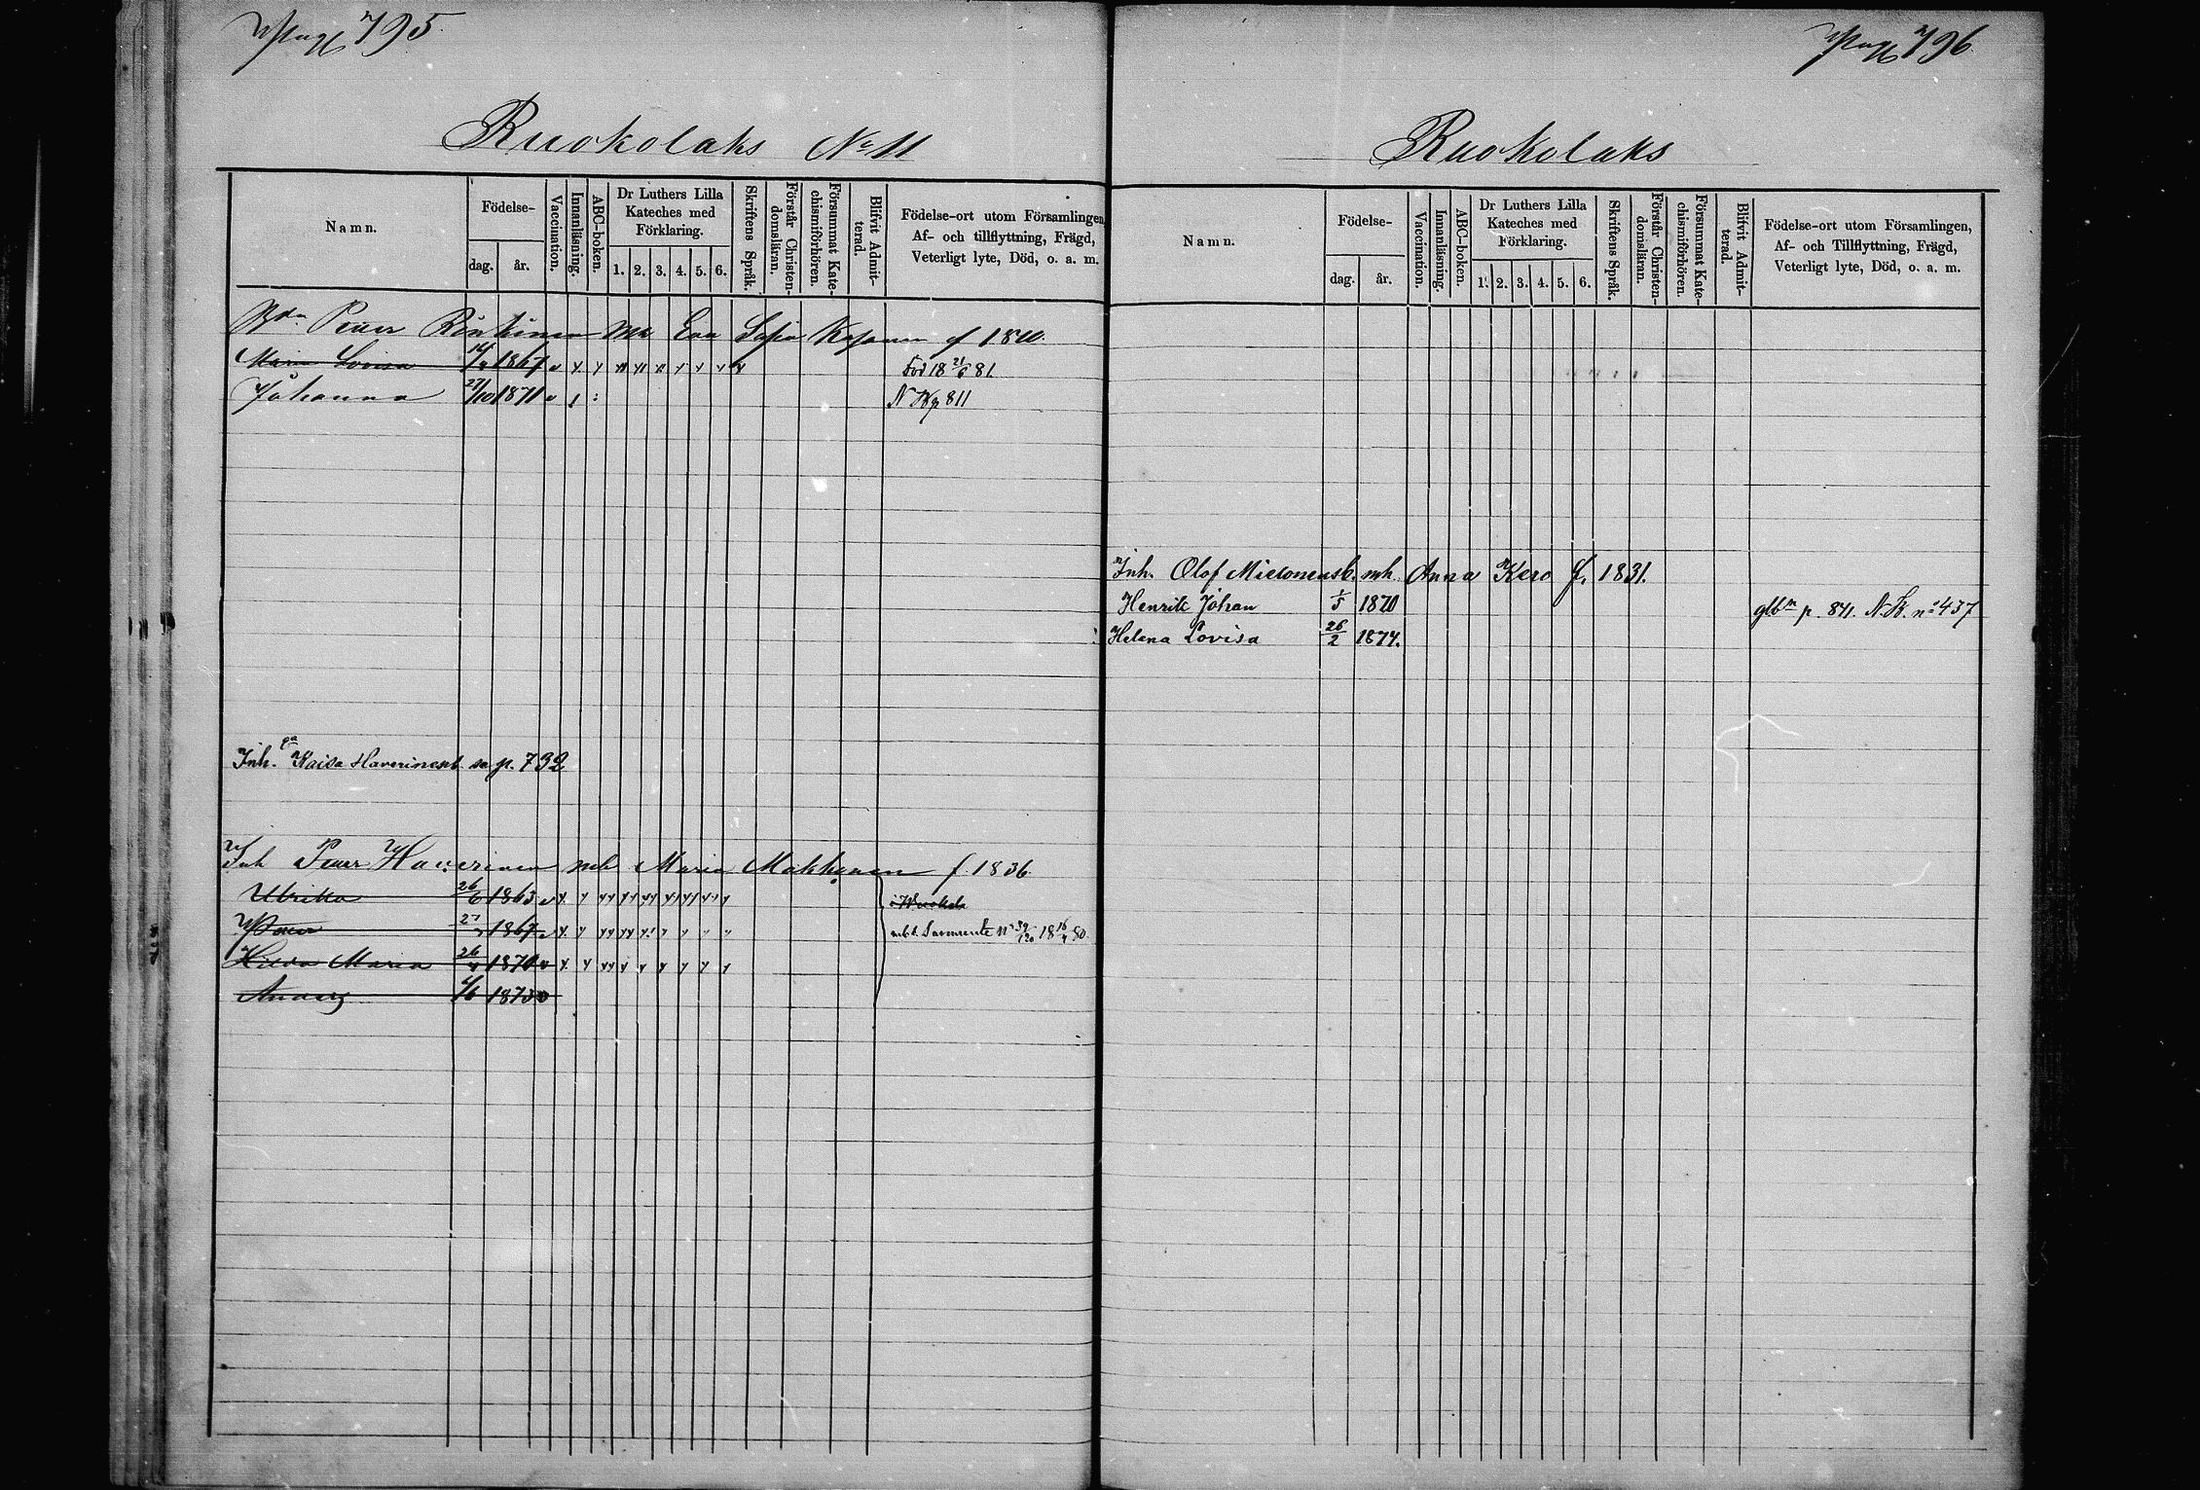 Pag 795
Ruokolaks No 11
Namn.
Födelse-
dag.
år.
Vaccination.
Innanläsning.
ABC-boken.
Dr Luthers Lilla
Kateches med
Förklaring.
1. 2. 3. 4. 5. 6.
Skriftens Språk.
Förstår Christen-
domsläran.
Försummat Kate-
chismiförhören.
Blifvit Admit-
terad.
Födelse-ort utom Församlingen,
Af- och tillflyttning, Frägd,
Veterligt lyte, Död, o. a. m.
Petter Rönkönen Eva Sofia Kosonen f 1840.
Maria Lovisa 1867 Död 18 21/6 81
Johanna 27/10 1871 N Kp 811
Inh. Kaisa Haverinens se p. 792
Inh Petter Haverinen mh Maria Makkonen f. 1836
Ulrikka 26/6 1863
Petter 27 1867 Suonenk. 18 16/4 80
Hilda Maria 26/4 1870
Anders 1/6 1873
Pag 796
Ruokolaks
Namn.
Födelse-
dag.
år.
Vaccination.
Innanläsning.
ABC-boken.
Dr Luthers Lilla
Kateches med
Förklaring.
1. 2. 3. 4. 5. 6.
Skriftens Språk.
Förstår Christen-
domsläran.
Försummat Kate-
chismiförhören.
Blifvit Admit-
terad.
Födelse-ort utom Församlingen,
Af- och Tillflyttning, Frägd,
Veterligt lyte, Död, o. a. m.
Inh. Olof Mietonens b. mh. Anna Kero f. 1831.
Henrik Johan 1/5 1870 glbm p. 841. N.B. no 437
Helena Lovisa 26/2 1874.